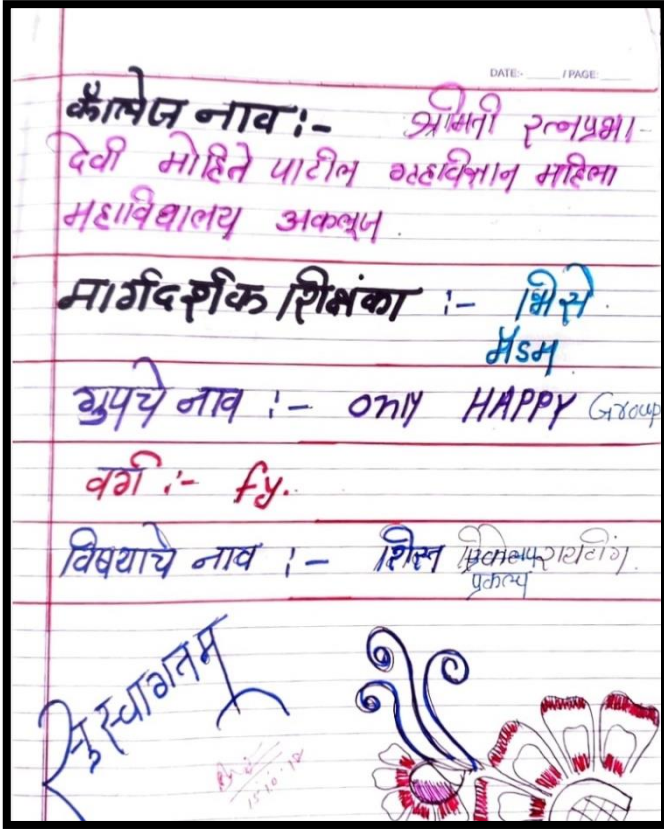 DATE:- ____ / PAGE: ____
कॉलेज नाव :- श्रीमती रत्नप्रभा-
देवी मोहिते पाटील गृहविज्ञान महिला
महाविद्यालय अकलूज.
मार्गदर्शक शिक्षिका :- भिसे
मॅडम
ग्रुपचे नाव :- only HAPPY Group
वर्ग :- fy.
विषयाचे नाव :- शिस्त
प्रकल्प
सुस्वागतम
15.10.18